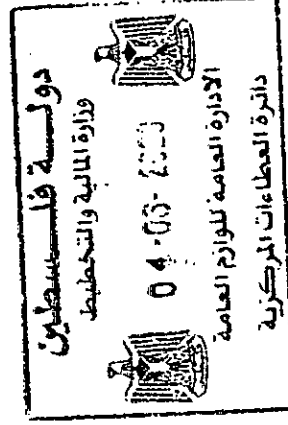 دولة فلسطين
وزارة المالية والتخطيط
04-03-
الادارة العامة للوازم العامة
دائرة العطاءات المركزية